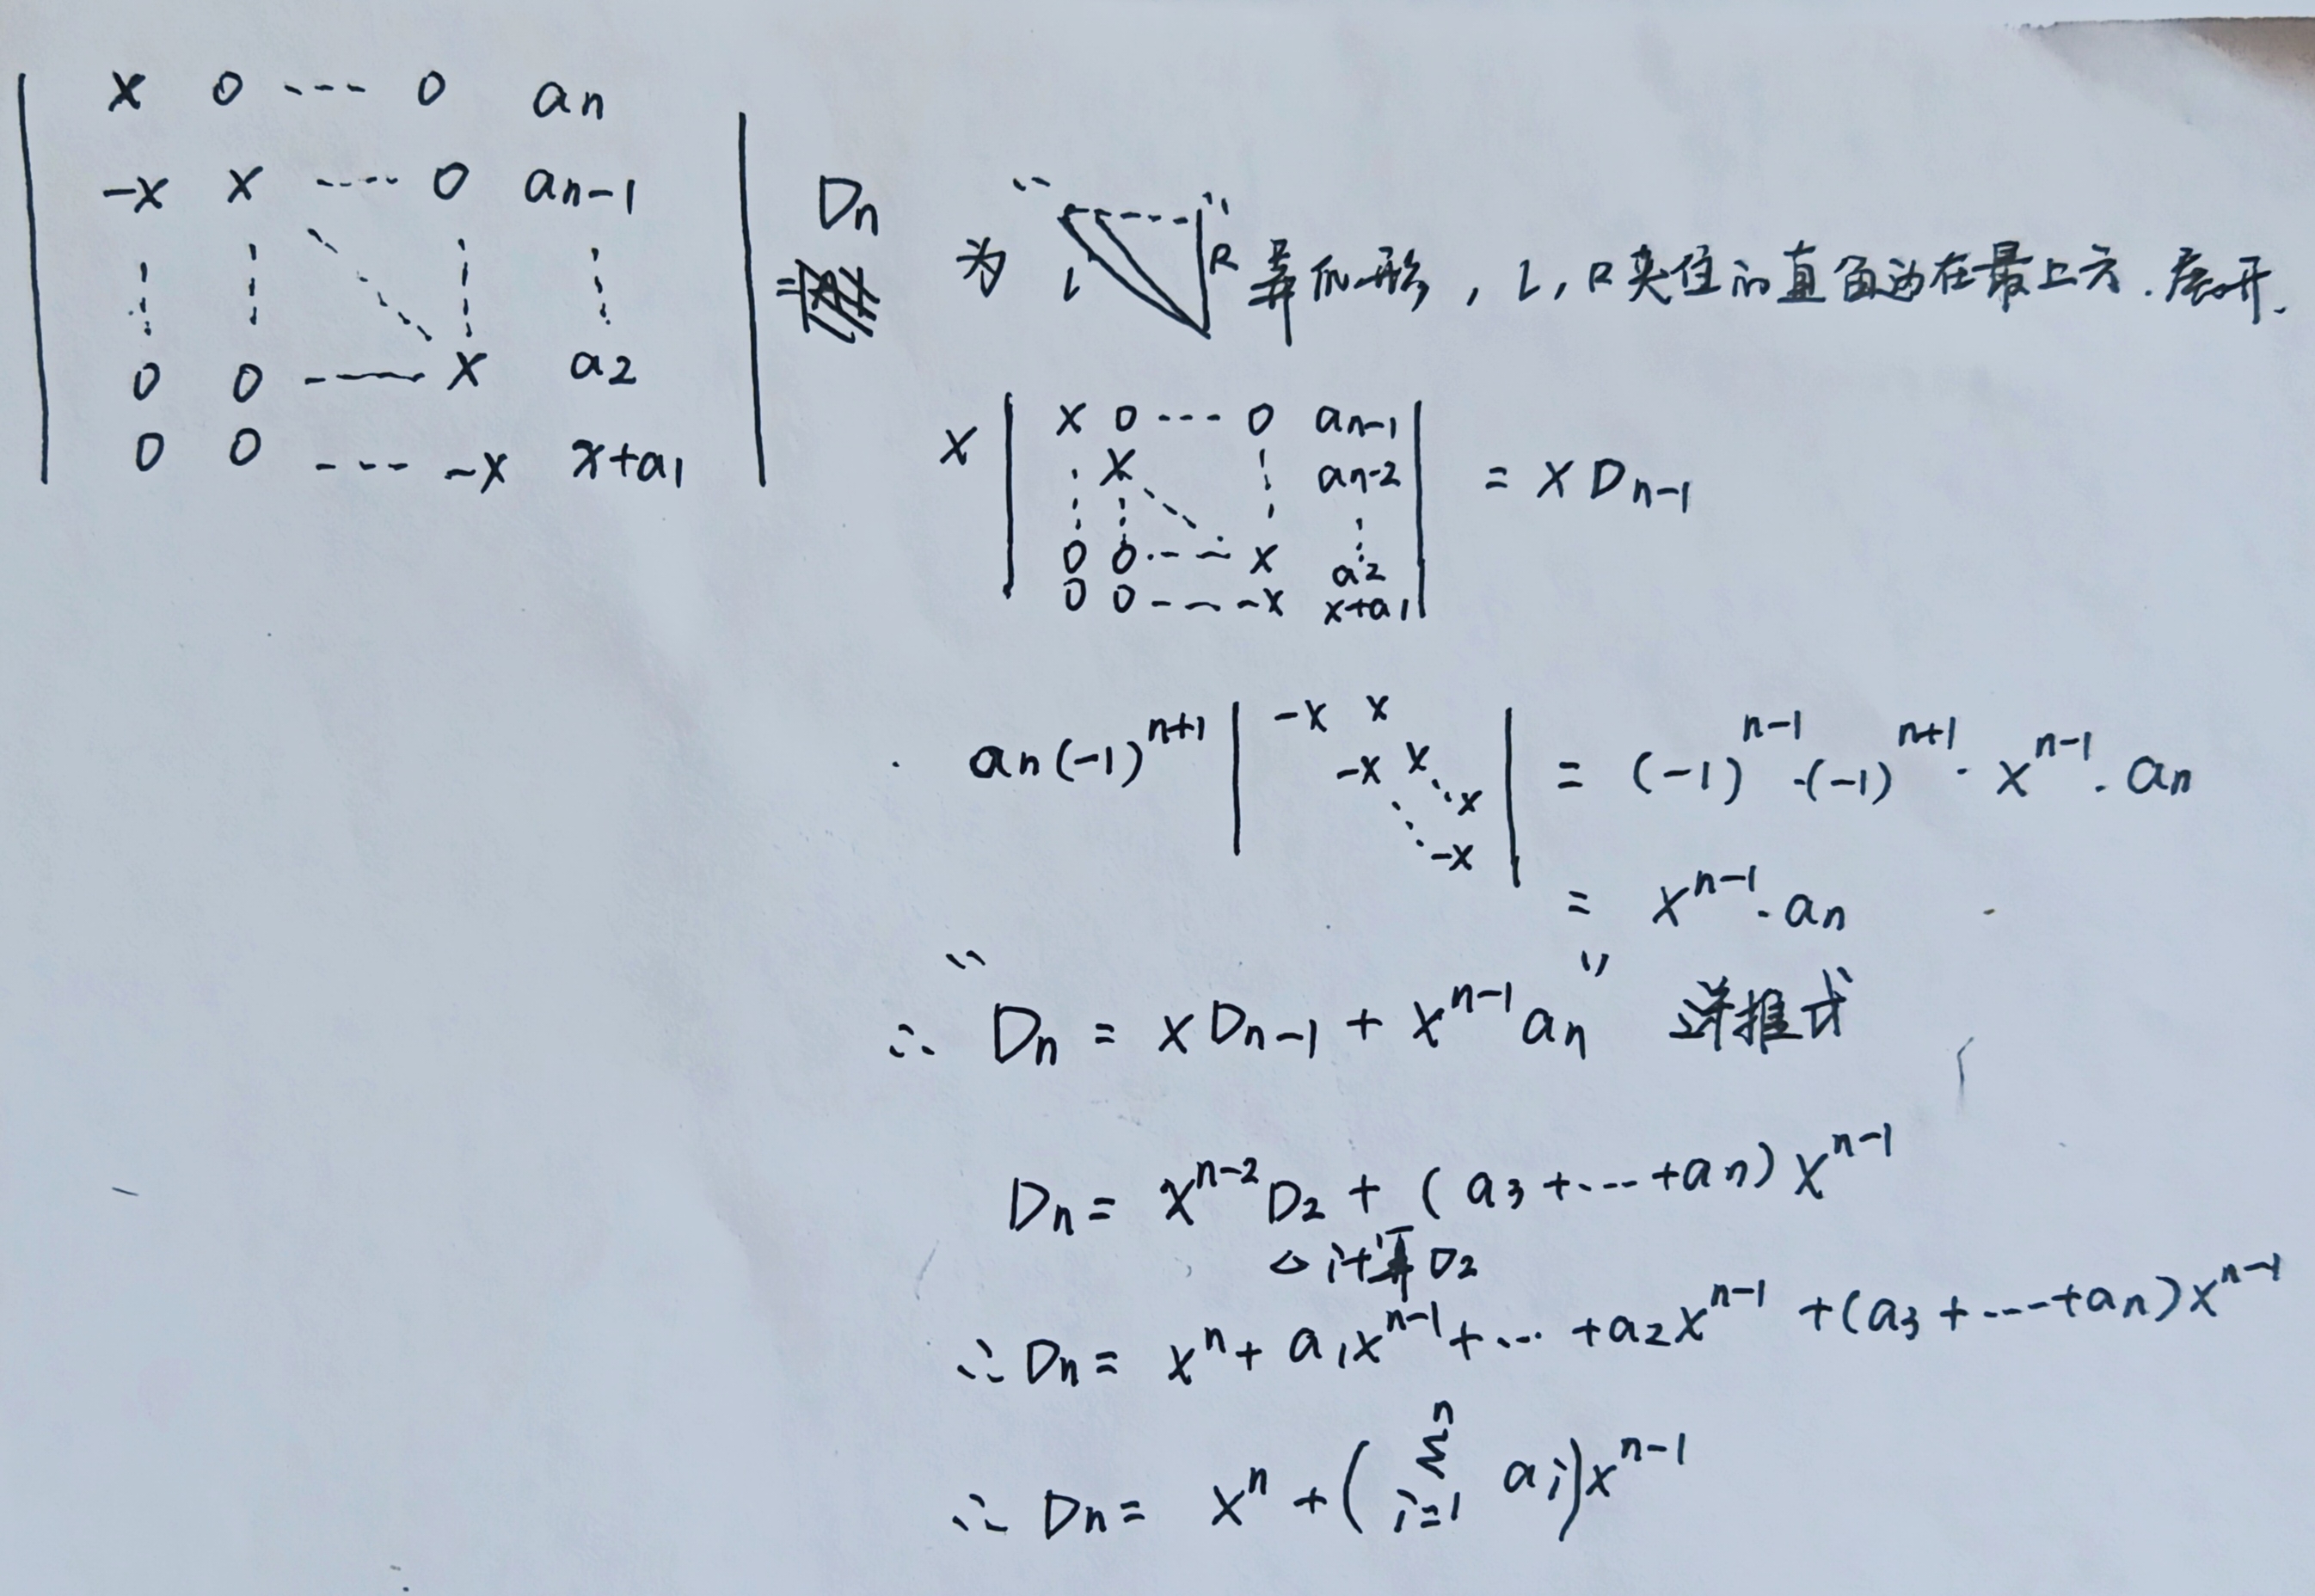 x 0 --- 0 an
-x x ---- 0 an-1
0 0 ---- x a2
0 0 --- -x x+a1
= Dn 为 “ L R ” 异爪形，L，R夹住的直角边在最上方．展开．
x | x 0 --- 0 an-1
x an-2
0 0 --- x a2
0 0 --- -x x+a1 | = x Dn-1
an(-1)^{n+1} | -x x
-x x
x
-x | = (-1)^{n-1}·(-1)^{n+1}· x^{n-1}· an
= x^{n-1}· an
∴ “Dn = xDn-1 + x^{n-1}an” 递推式
Dn = x^{n-2}D2 + (a3+---+an)x^{n-1}
△ 计算D2
∴ Dn = x^n + a1x^{n-1}+ ... +a2x^{n-1} +(a3+---+an)x^{n-1}
∴ Dn = x^n + (Σ_{i=1}^{n} ai)x^{n-1}